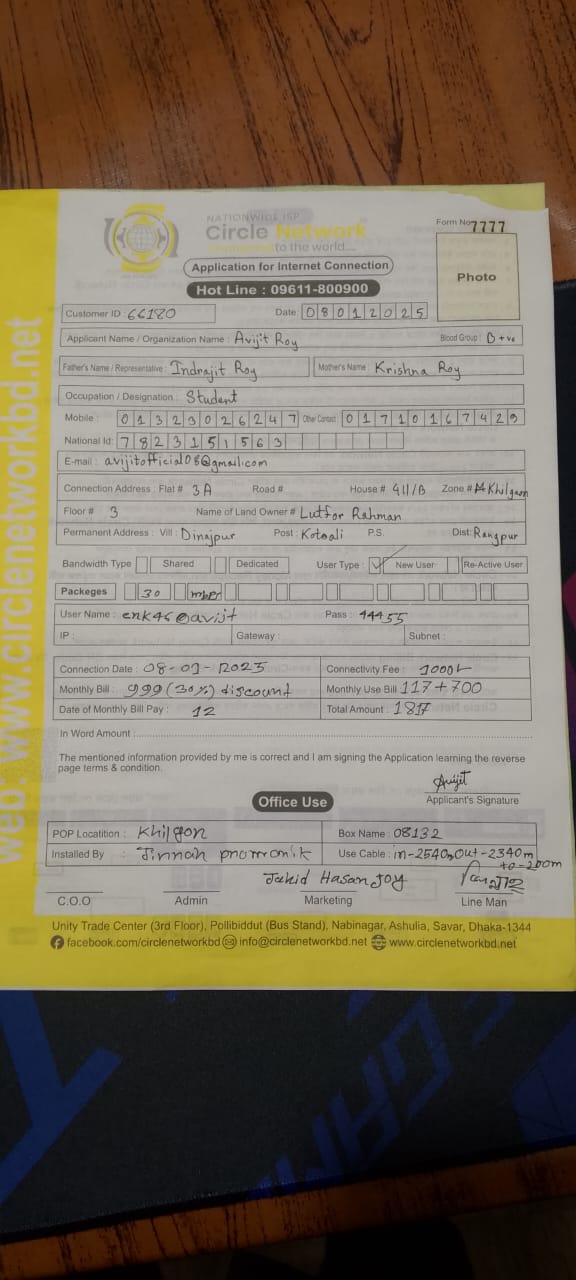 NATIONWIDE ISP
Circle Network
Connected to the world....
Form No 7777
Application for Internet Connection
Hot Line : 09611-800900
Photo
Customer ID : 66180
Date 08012025
Applicant Name / Organization Name : Avijit Roy Blood Group : B+ve
Father's Name / Representative : Indrajit Roy Mother's Name : Krishna Roy
Occupation / Designation : Student
Mobile : 01323026247 Other Contact 01710167429
National Id: 7823151563
E-mail : avijitofficial08@gmail.com
Connection Address : Flat # 3A Road # House # 411/B Zone # Khilgaon
Floor # 3 Name of Land Owner # Lutfor Rahman
Permanent Address : Vill : Dinajpur Post : Kotoali P.S. Dist: Rangpur
Bandwidth Type Shared Dedicated User Type : ✓ New User Re-Active User
Packeges 30 mbps
User Name : enk46@avijit Pass : 44455
IP : Gateway : Subnet :
Connection Date : 08-01-2025 Connectivity Fee : 1000
Monthly Bill : 999 (30%) discount Monthly Use Bill 117+700
Date of Monthly Bill Pay : 12 Total Amount : 1817
In Word Amount :
The mentioned information provided by me is correct and I am signing the Application learning the reverse
page terms & condition.
Avijit
Applicant's Signature
Office Use
POP Locatition : Khilgon Box Name : 08132
Installed By : Jinnah pnorromik Use Cable : in-2540m, Out-2340m
to-200m
Jahid Hasan Joy
C.O.O Admin Marketing Line Man
Unity Trade Center (3rd Floor), Pollibiddut (Bus Stand), Nabinagar, Ashulia, Savar, Dhaka-1344
facebook.com/circlenetworkbd info@circlenetworkbd.net www.circlenetworkbd.net
web: www.circlenetworkbd.net